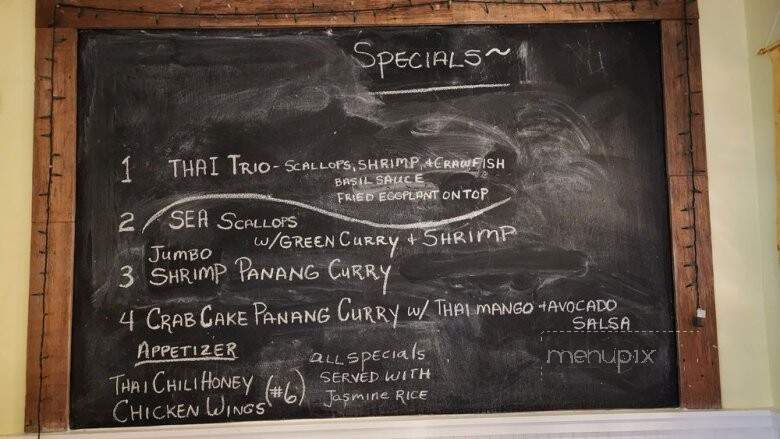 SPECIALS~
1 THAI TRIO - SCALLOPS, SHRIMP, + CRAWFISH
BASIL SAUCE
FRIED EGGPLANT ON TOP
2 SEA SCALLOPS
W/GREEN CURRY + SHRIMP
JUMBO
3 SHRIMP PANANG CURRY
4 CRAB CAKE PANANG CURRY W/ THAI MANGO + AVOCADO
SALSA
APPETIZER
THAI CHILI HONEY (#6)
CHICKEN WINGS
ALL SPECIALS
SERVED WITH
JASMINE RICE
menupix